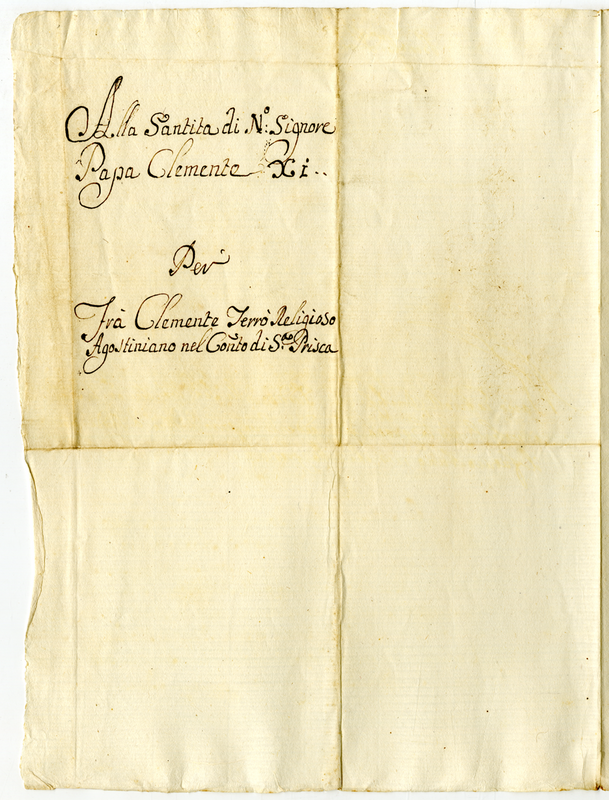 Alla Santita di N.º Signore
Papa Clemente Xi..
Per
Frà Clemente Ferrò Religioso
Agostiniano nel Conto di S.ta Prisca